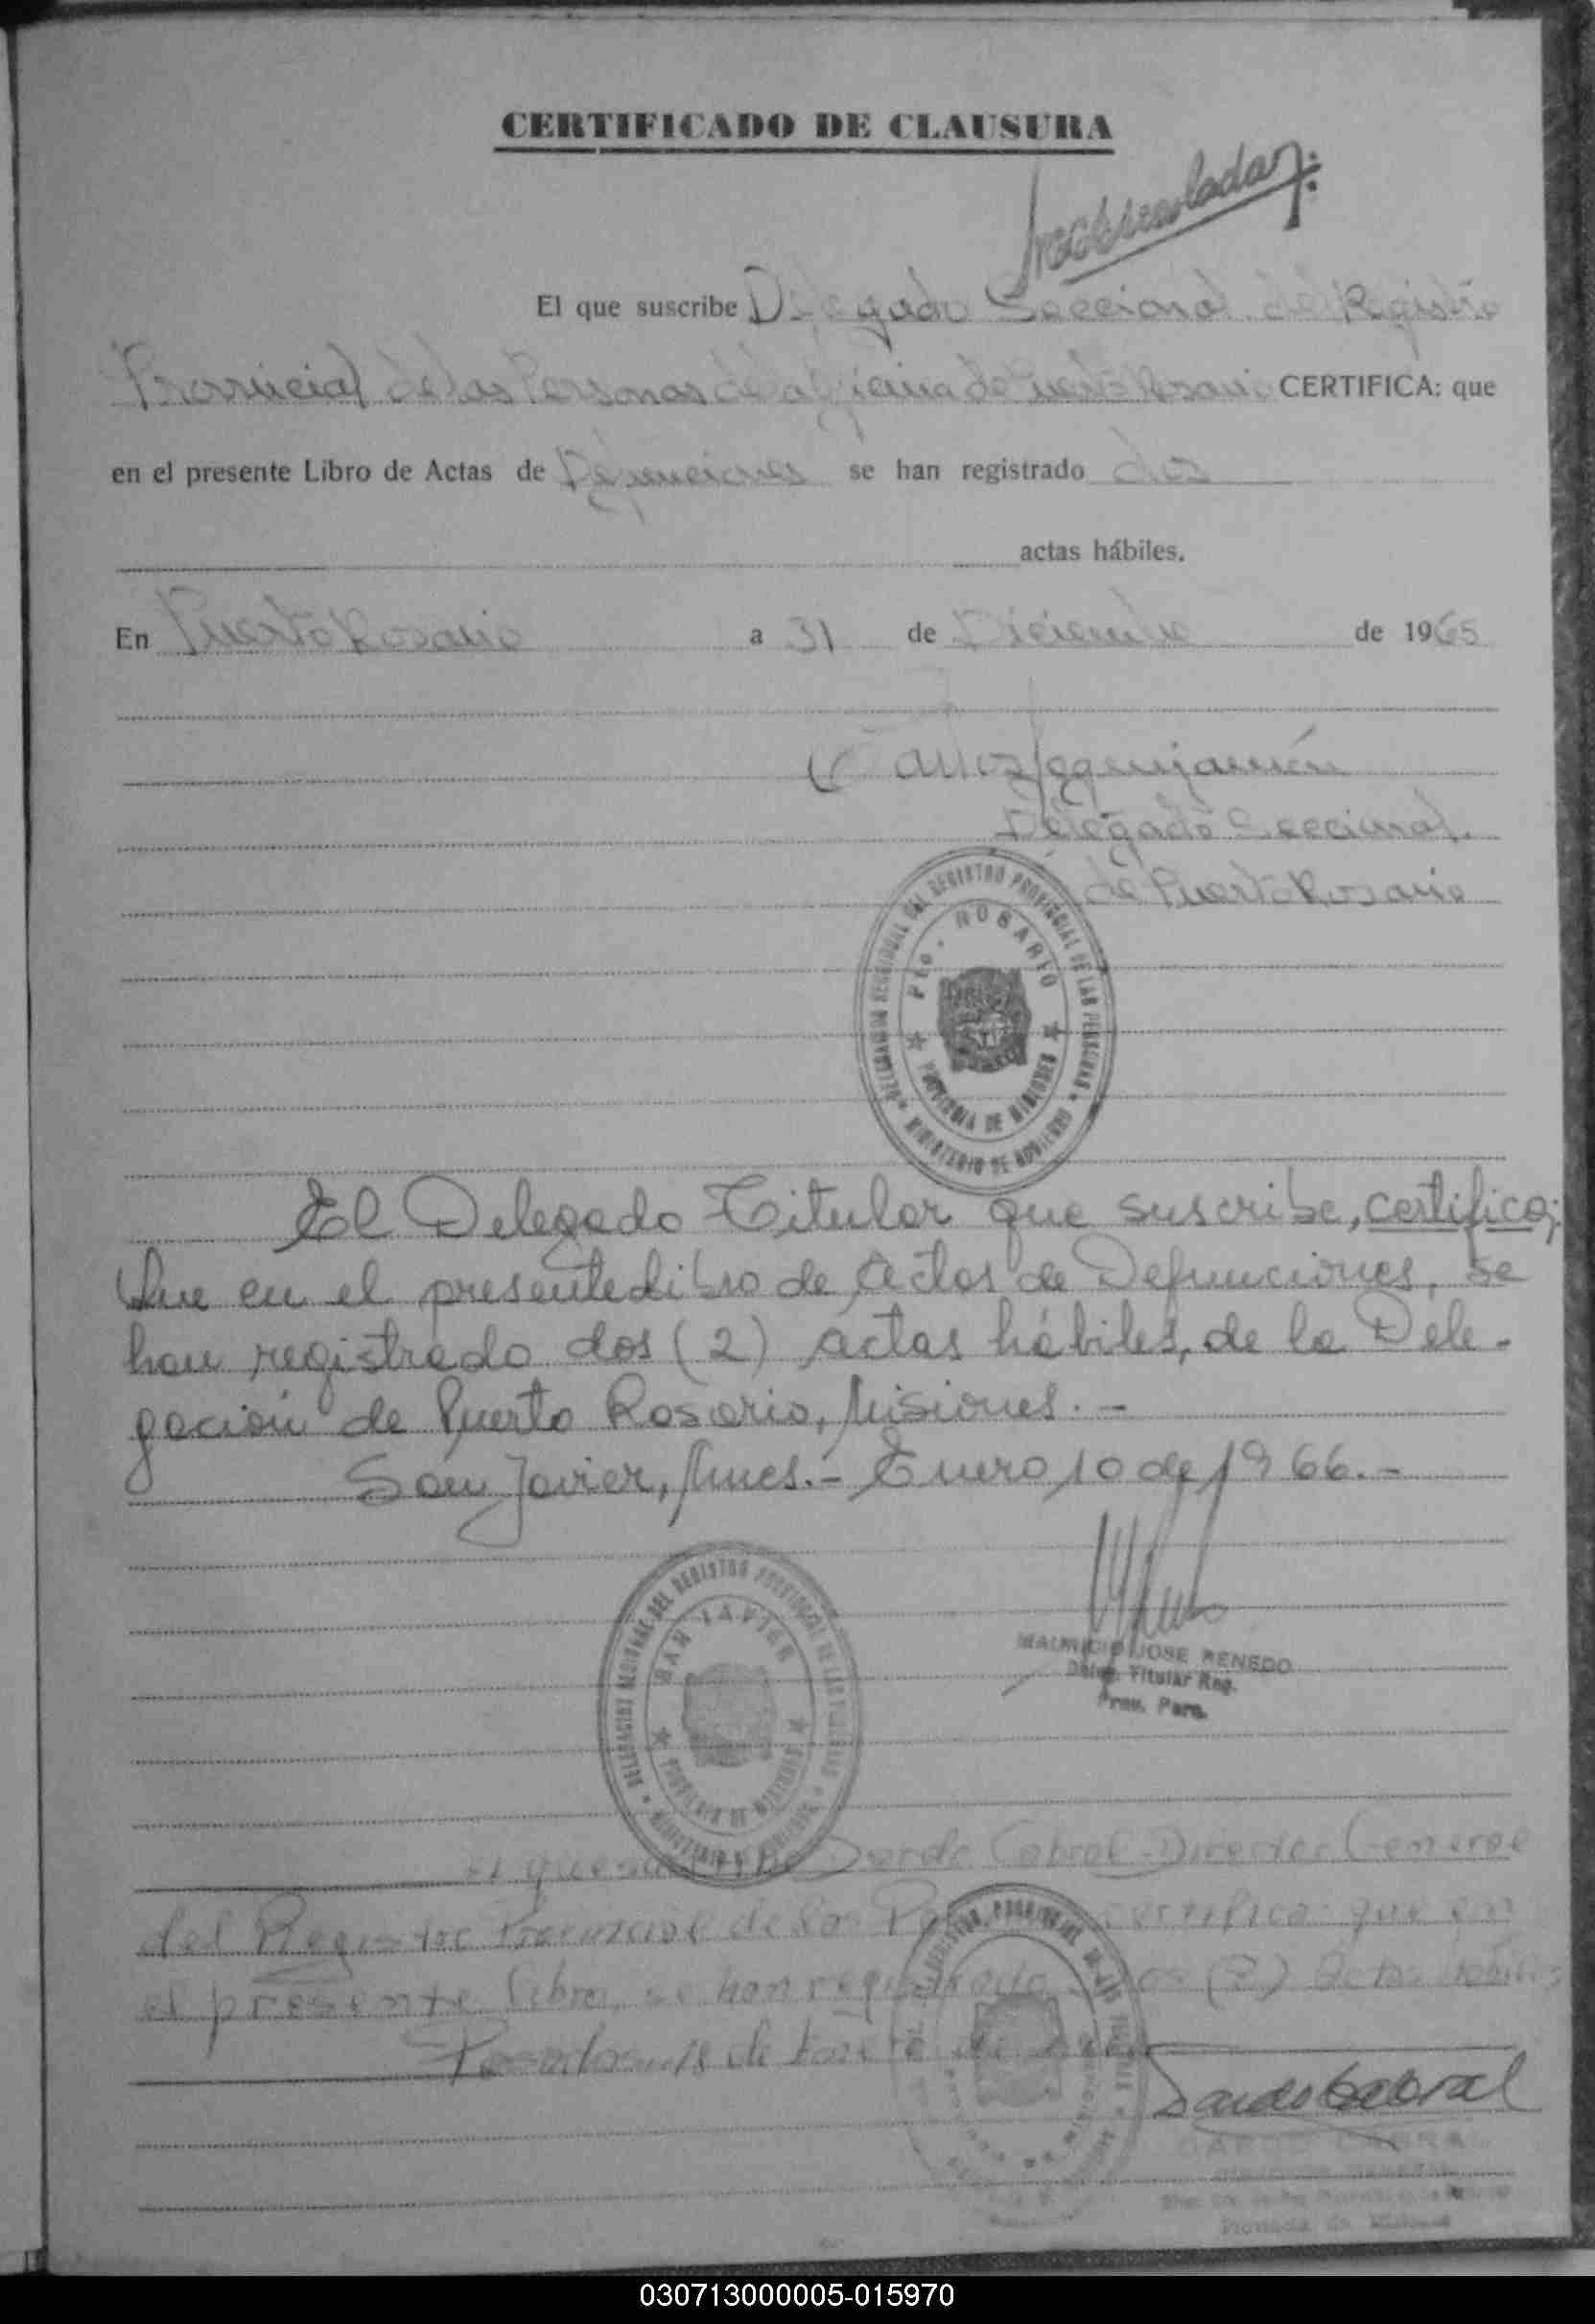 CERTIFICADO DE CLAUSURA
El que suscribe Delegado Seccional del Registro
Provincial de las Personas de Puerto Rosario CERTIFICA: que
en el presente Libro de Actas de Defunciones se han registrado dos
actas hábiles.
En Puerto Rosario a 31 de Diciembre de 1965
Delegado Seccional.
de Puerto Rosario
DEL REGISTRO PROVINCIAL DE LAS PERSONAS
Pto. ROSARIO
PROVINCIA DE MISIONES
MINISTERIO DE GOBIERNO
El Delegado Titular que suscribe, certifica;
Que en el presente Libro de Actas de Defunciones, se
han registrado dos (2) actas hábiles, de la Dele-
gación de Puerto Rosario, Misiones. -
San Javier, Mnes. - Enero 10 de 1966. -
DELEGACION REGIONAL DEL REGISTRO PROVINCIAL DE LAS PERSONAS
SAN JAVIER
PROVINCIA DE MISIONES
MAURICIO JOSE RENEDO
Deleg. Titular Reg.
Prov. Pers.
El que suscribe Dardo Cabral Director General
del Registro Provincial de las certifica que en
el presente libro, se han registrado dos (2) actas hábiles
Posadas, 18 de
Dardo Cabral
DARDO CABRAL
030713000005-015970